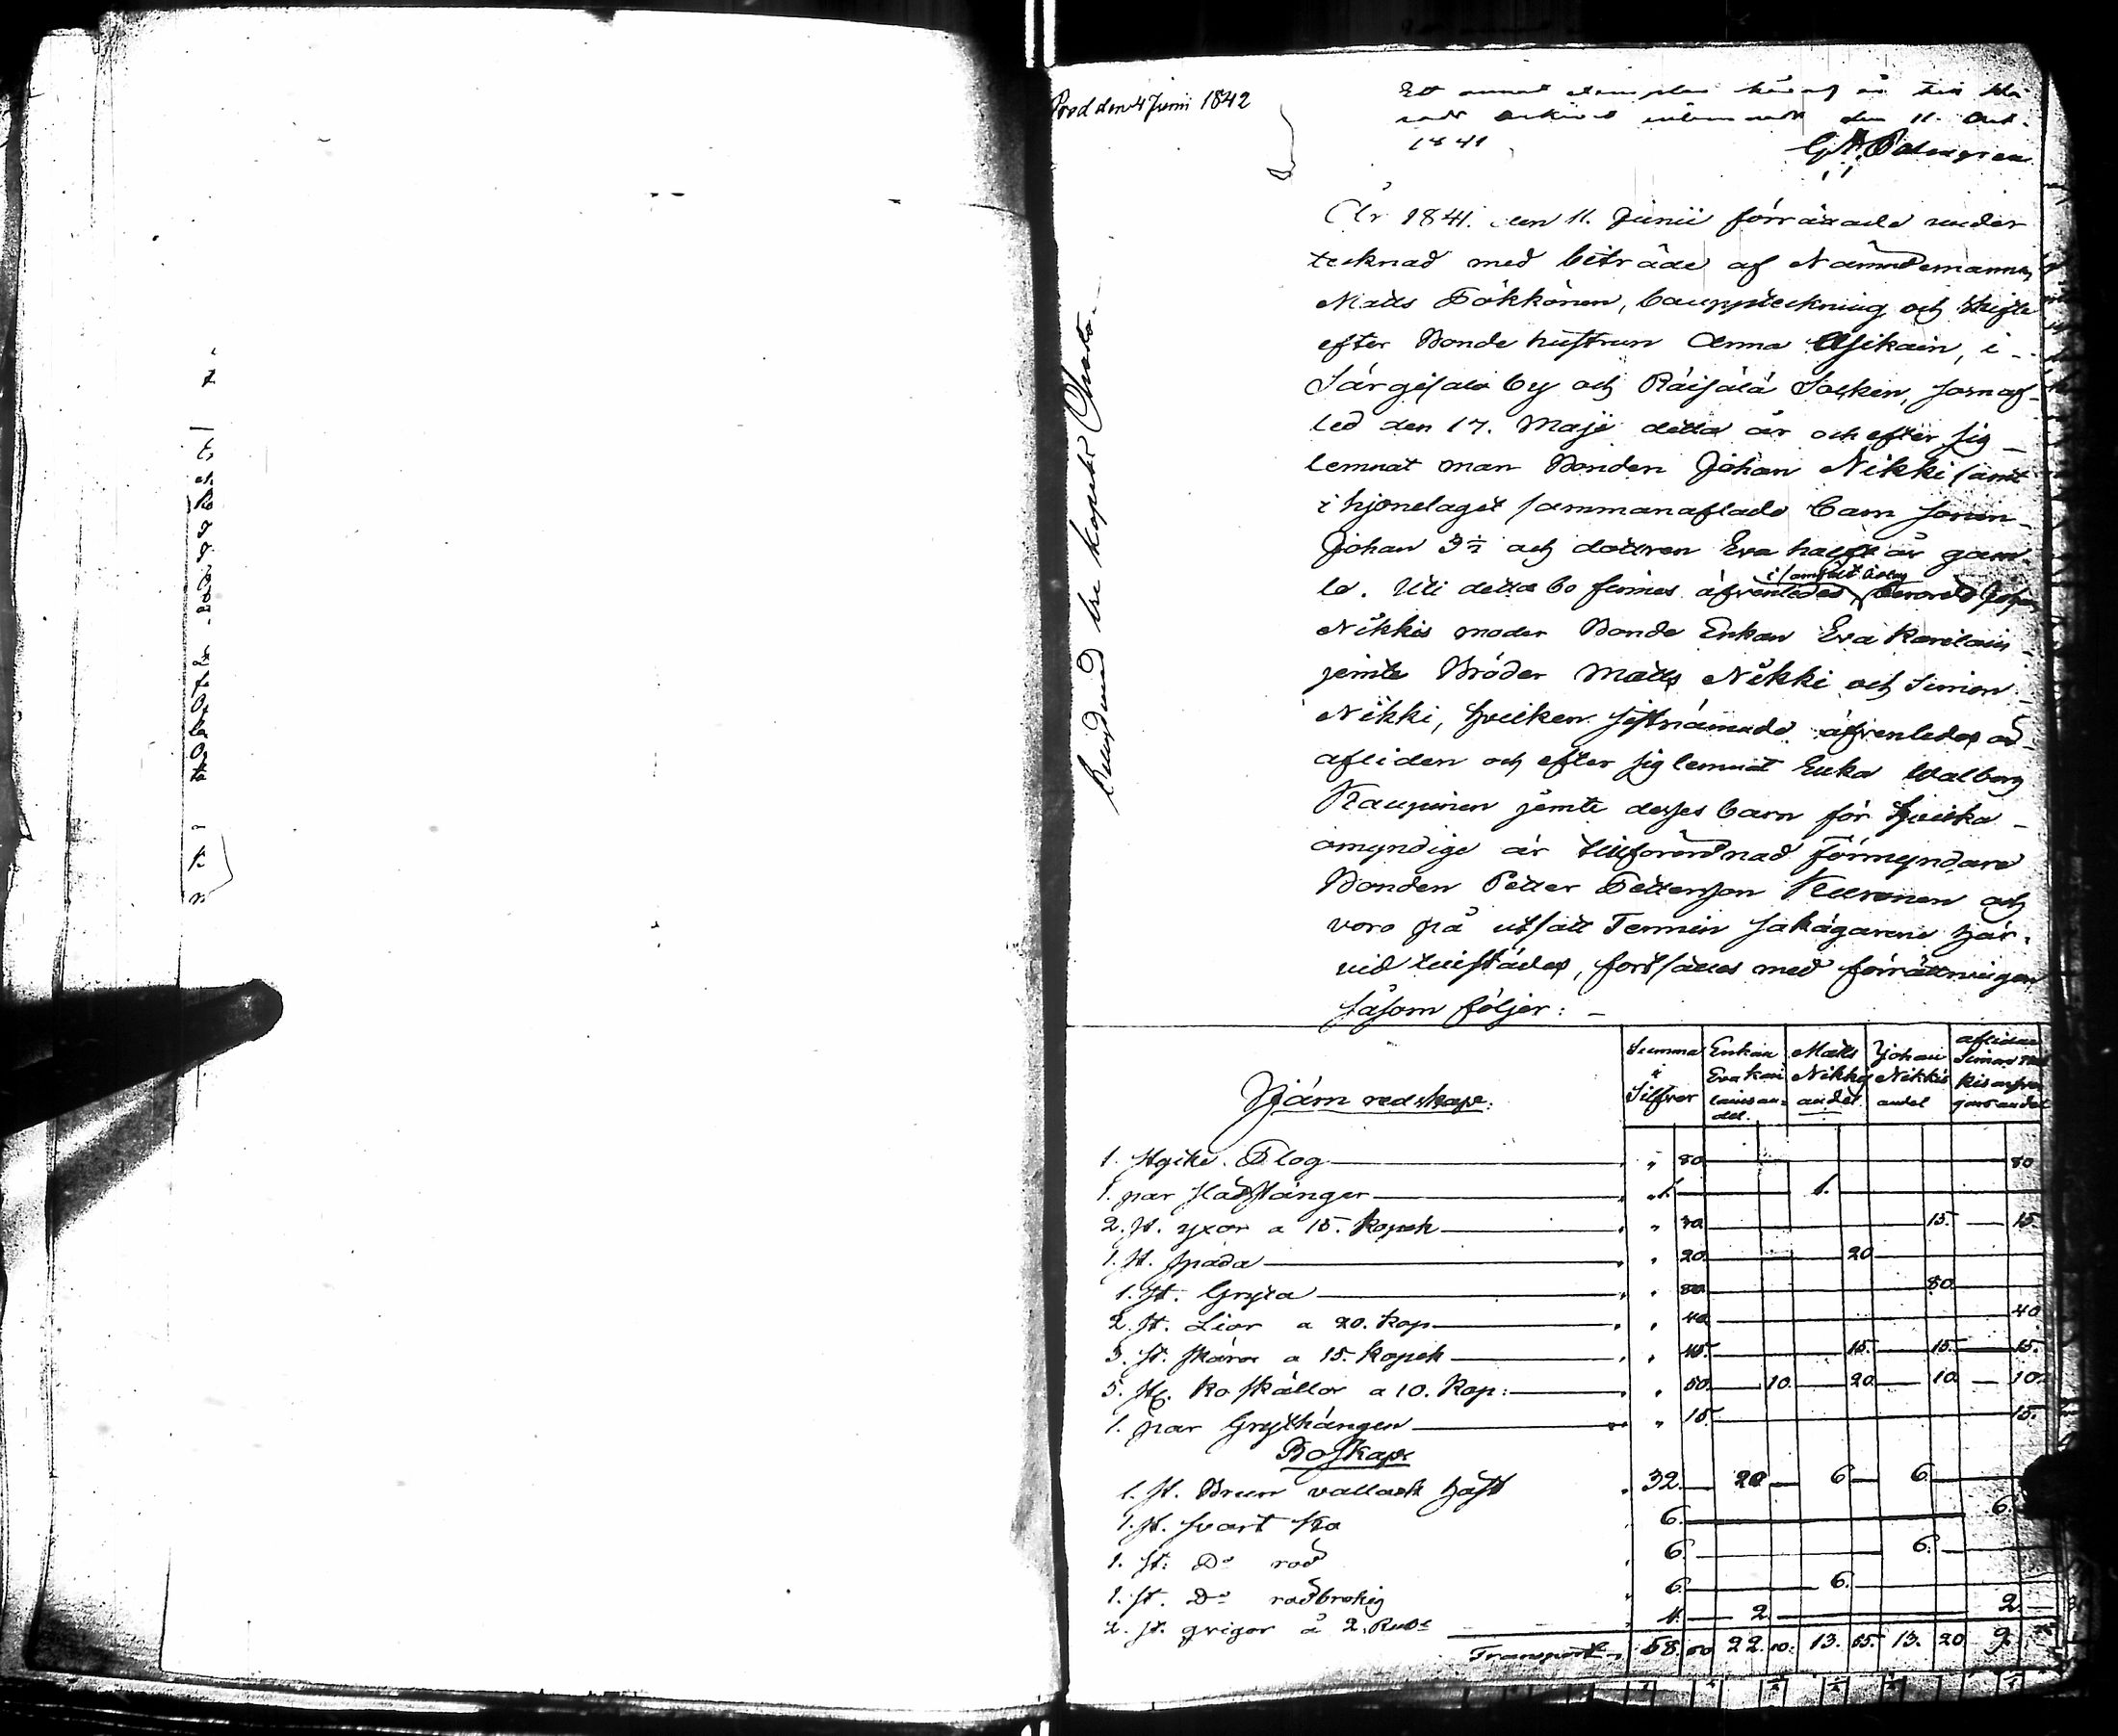 Prod den 4 Juni 1842
Ett annat exemplar häraf är till Hä
rads Arkivet inlemnadt den 11. Oct.
1841
Hundrad tre kopek Charta
År 1841. den 11. Junii förrättade under
tecknad med biträde af Nämndemannen
Matts Pökkönen, bouppteckning och skifte
efter Bonde hustrun Anna Asikain, i
Särgisalo by och Räisälä Socken, som af-
led den 17. Maji detta år och efter sig
lemnat man Bonden Johan Nikki samt
i hjonelaget sammanaflade barn sonen
Johan 3½ och dottren Eva halft år gam-
la. Uti detta bo finnes äfvenledes i samfält bolag benämnde Johan
Nikkis moder Bonde Enkan Eva Karilain
jemte Bröder Matts Nikki och Simon
Nikki, hvilken sistnämnde äfvenledes är
afliden och efter sig lemnat Enka Walborg
Kaupinen jemte desses barn för hvilka
omyndige är tillförordnad Förmyndare
Bonden Petter Pettersson Kuronen och
voro på utsatt Termin Sakägarene här-
vid tillstädes, fortsattes med förrättningen
såsom följer: —
Summa i Silfver | Enkan Eva Kari lains an- del. | Matts Nikkis andel | Johan Nikkis andel | aflidne Simon Nik kis arfvin gars andel
Järn redskap:
1. styke Plog " 80 80
1. par Slädstänger " 1. 1.
2. st. yxor a 15. Kopek " 30 15. 15.
1. st. spada " 20. 20
1. st. Gryta " 80 80
2. st. Liar a 20. Kop " 40 40
3. st. skäror a 15. Kopek " 45. 15. 15. 15.
5. st. ko skällor a 10. Kop: " 50. 10. 20 10 10.
1. par Grythängen " 15. 15.
Boskap
1. st. Brun vallack häst 32. 20 6 6.
1. st. svart Ko 6. 6.
1. st. Do röd 6. 6.
1. st. Do rödbrokig 6. 6.
2. st. qvigor à 2. Rub. 4. 2. 2.
Transport 58. 60 22. 10. 13. 55. 13. 20 9.